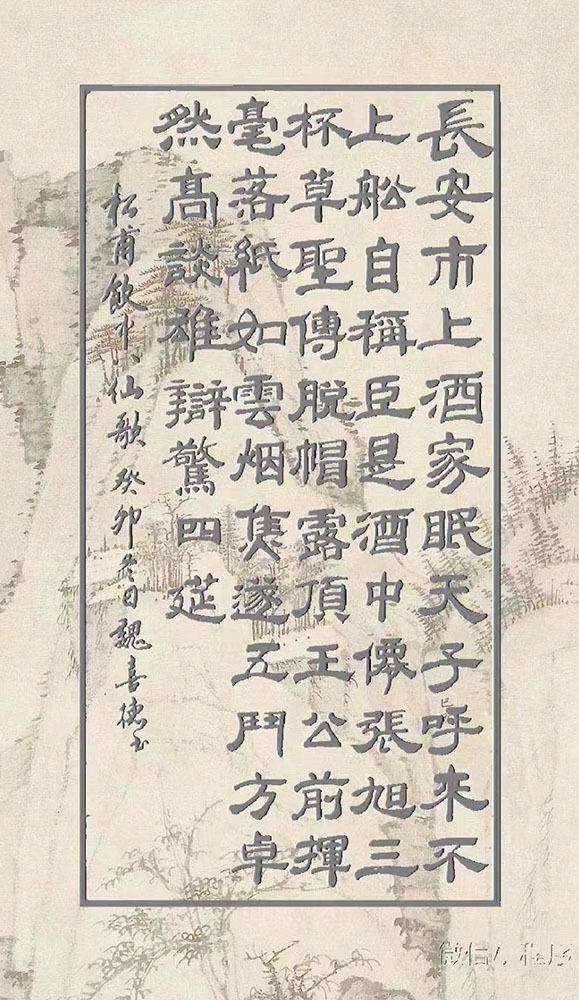 長安市上酒家眠天子呼来不
上船自稱臣是酒中僊張旭三
杯草聖傳脱帽露頂王公前揮
毫落紙如雲烟焦遂五鬥方卓
然髙談雄辯驚四筵
杜甫飲中八仙歌 癸卯冬日魏喜德书
微信小程序